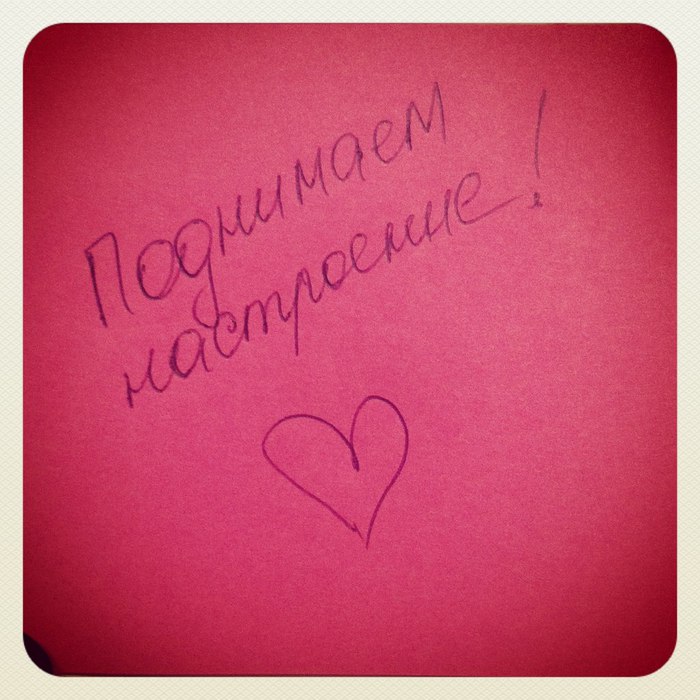 Поднимаем
настроение!